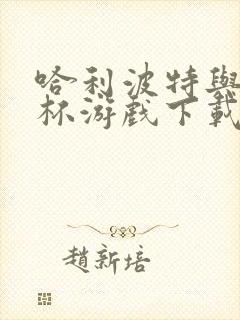 哈利波特與
杯游戲下載
趙新培